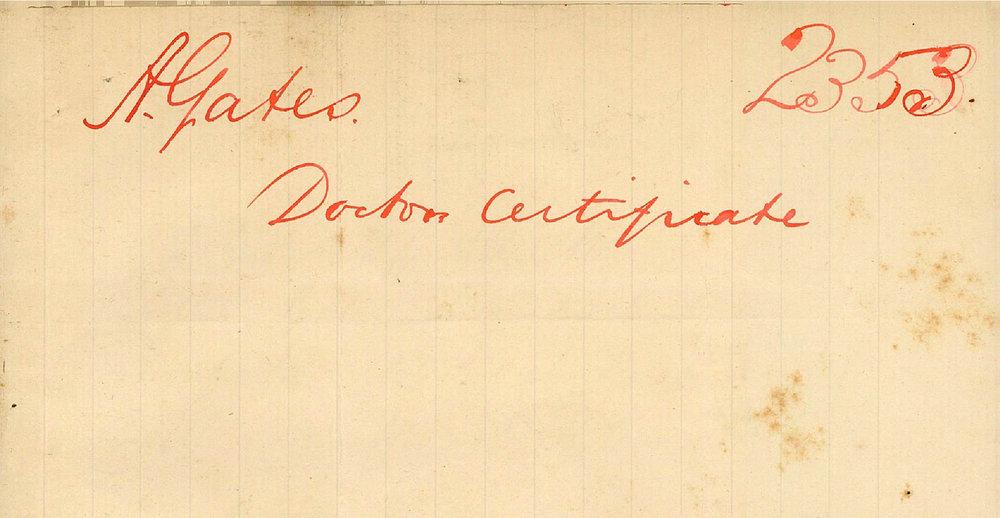 A. Gates. 2353.
Doctors Certificate